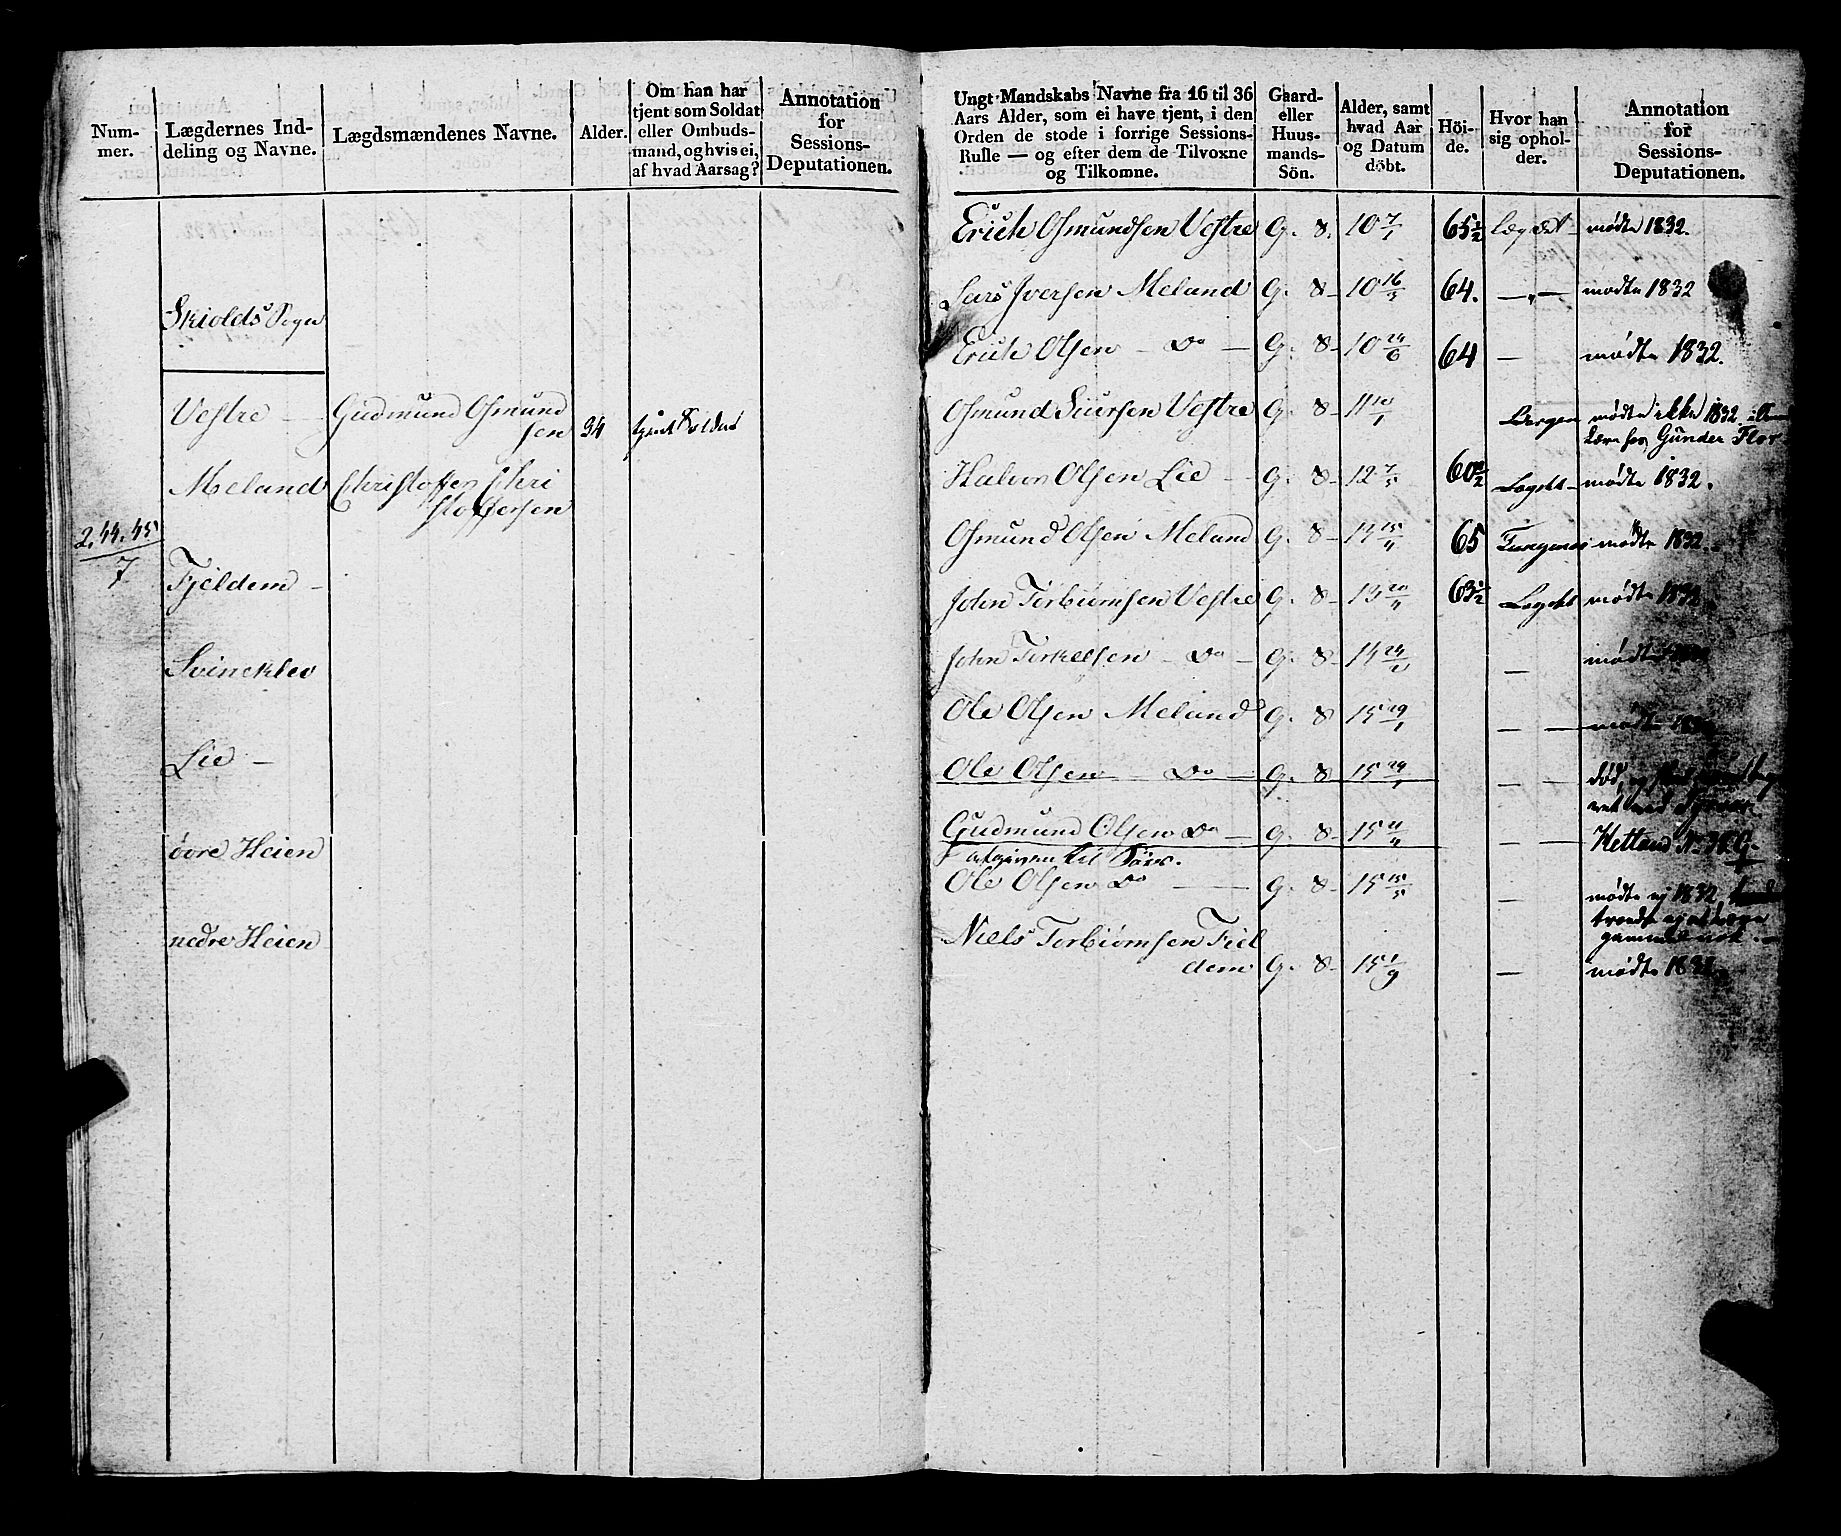 Num-
mer.
Lægdernes Ind-
deling og Navne.
Lægdsmændenes Navne.
Alder.
Om han har
tjent som Soldat
eller Ombuds-
mand, og hvis ei,
af hvad Aarsag?
Annotation
for
Sessions-
Deputationen.
Skiolds Sogn
Vestre - Gudmund Osmund
sen 34 tjent Soldat
Meland Christoffer Chri
stoffersen
2.44.45
7
Fjeldem -
Svinekleo
Lie -
övre Heien
nedre Heien
Ungt Mandskabs Navne fra 16 til 36
Aars Alder, som ei have tjent, i den
Orden de stode i forrige Sessions-
Rulle — og efter dem de Tilvoxne
og Tilkomne.
Gaard-
eller
Huus-
mands-
Sön.
Alder, samt
hvad Aar
og Datum
döbt.
Höi-
de.
Hvor han
sig ophol-
der.
Annotation
for
Sessions-
Deputationen.
Erich Osmundsen Vestre G. 8. 10 7/1 65½ Lægdet mödte 1832.
Lars Iversen Meland G. 8 - 10 16/3 64. —„— mödte 1832
Erich Olsen - Do - G. 8 - 10 24/6 64 — mödte 1832.
Osmund Siursen Vestre G. 8 - 11 10/1 Bergen mödte ikke 1832.
Lære hos Gunder Flor
Halvor Olsen Lie - G. 8 - 12 7/5 60½ Lægdet mödte 1832.
Osmund Olsen Meland G. 8 - 14 15/11 65 Tungenes mödte 1832.
John Torbiörnsen Vestre G. 8 - 13 20/11 63½ Lægdet mödte 1832
John Torkelsen - Do - G. 8 - 14 24/2 — mödte
Ole Olsen Meland G. 8 15 29/1 — — mödte 183
Ole Olsen - Do - G. 8 15 29/1 — — död, og
ved
Gudmund Olsen Do - G. 8 - 15 11/11 — — Hetland No 38 G.
afgiven til Söes.
Ole Olsen Do - G. 8 - 15 15/5 — mödte ej 1832,
troede ej at være
gammel nok. —
Niels Torbiörnsen Fiel
dem G. 8 - 15 1/9 — mödte 1832